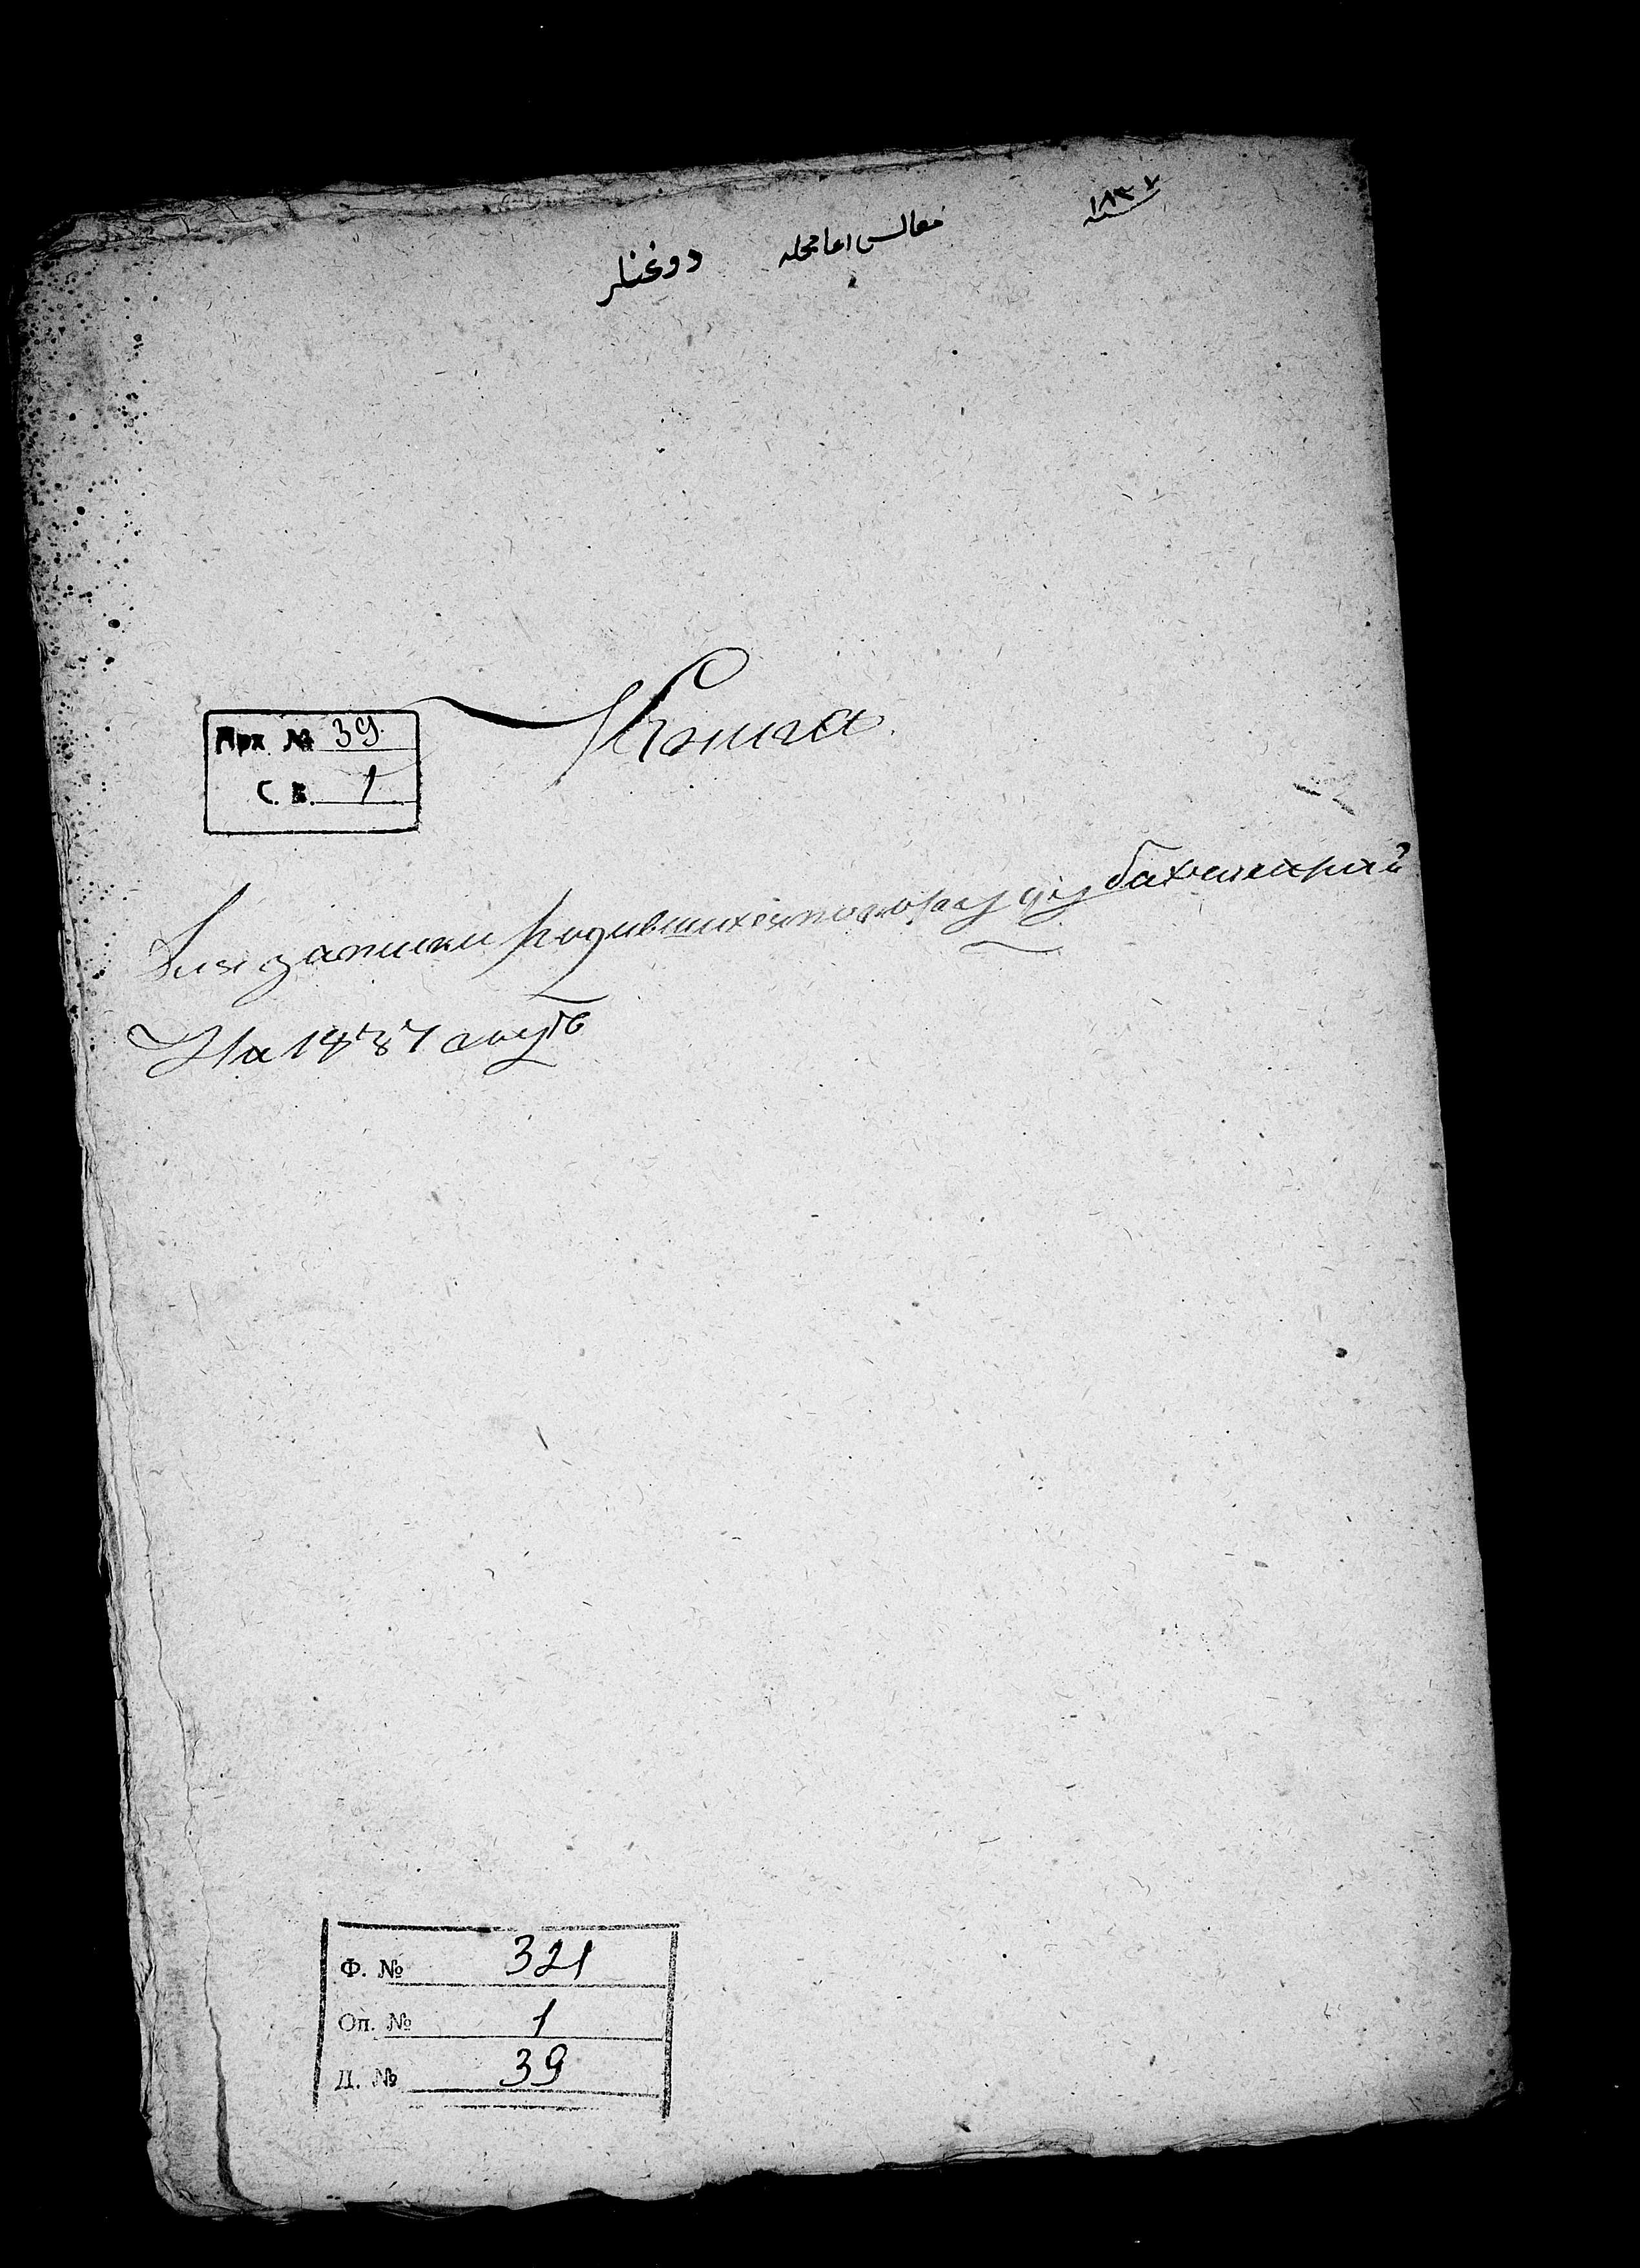 سنه ١٨٣٧
اغا محله دوغنلر
Книга
Арх № 39
С. В. 1
Для записки родившихся по городу Бахчисарай
На 1837 годъ
Ф. № 321
Оп. № 1
Д. № 39